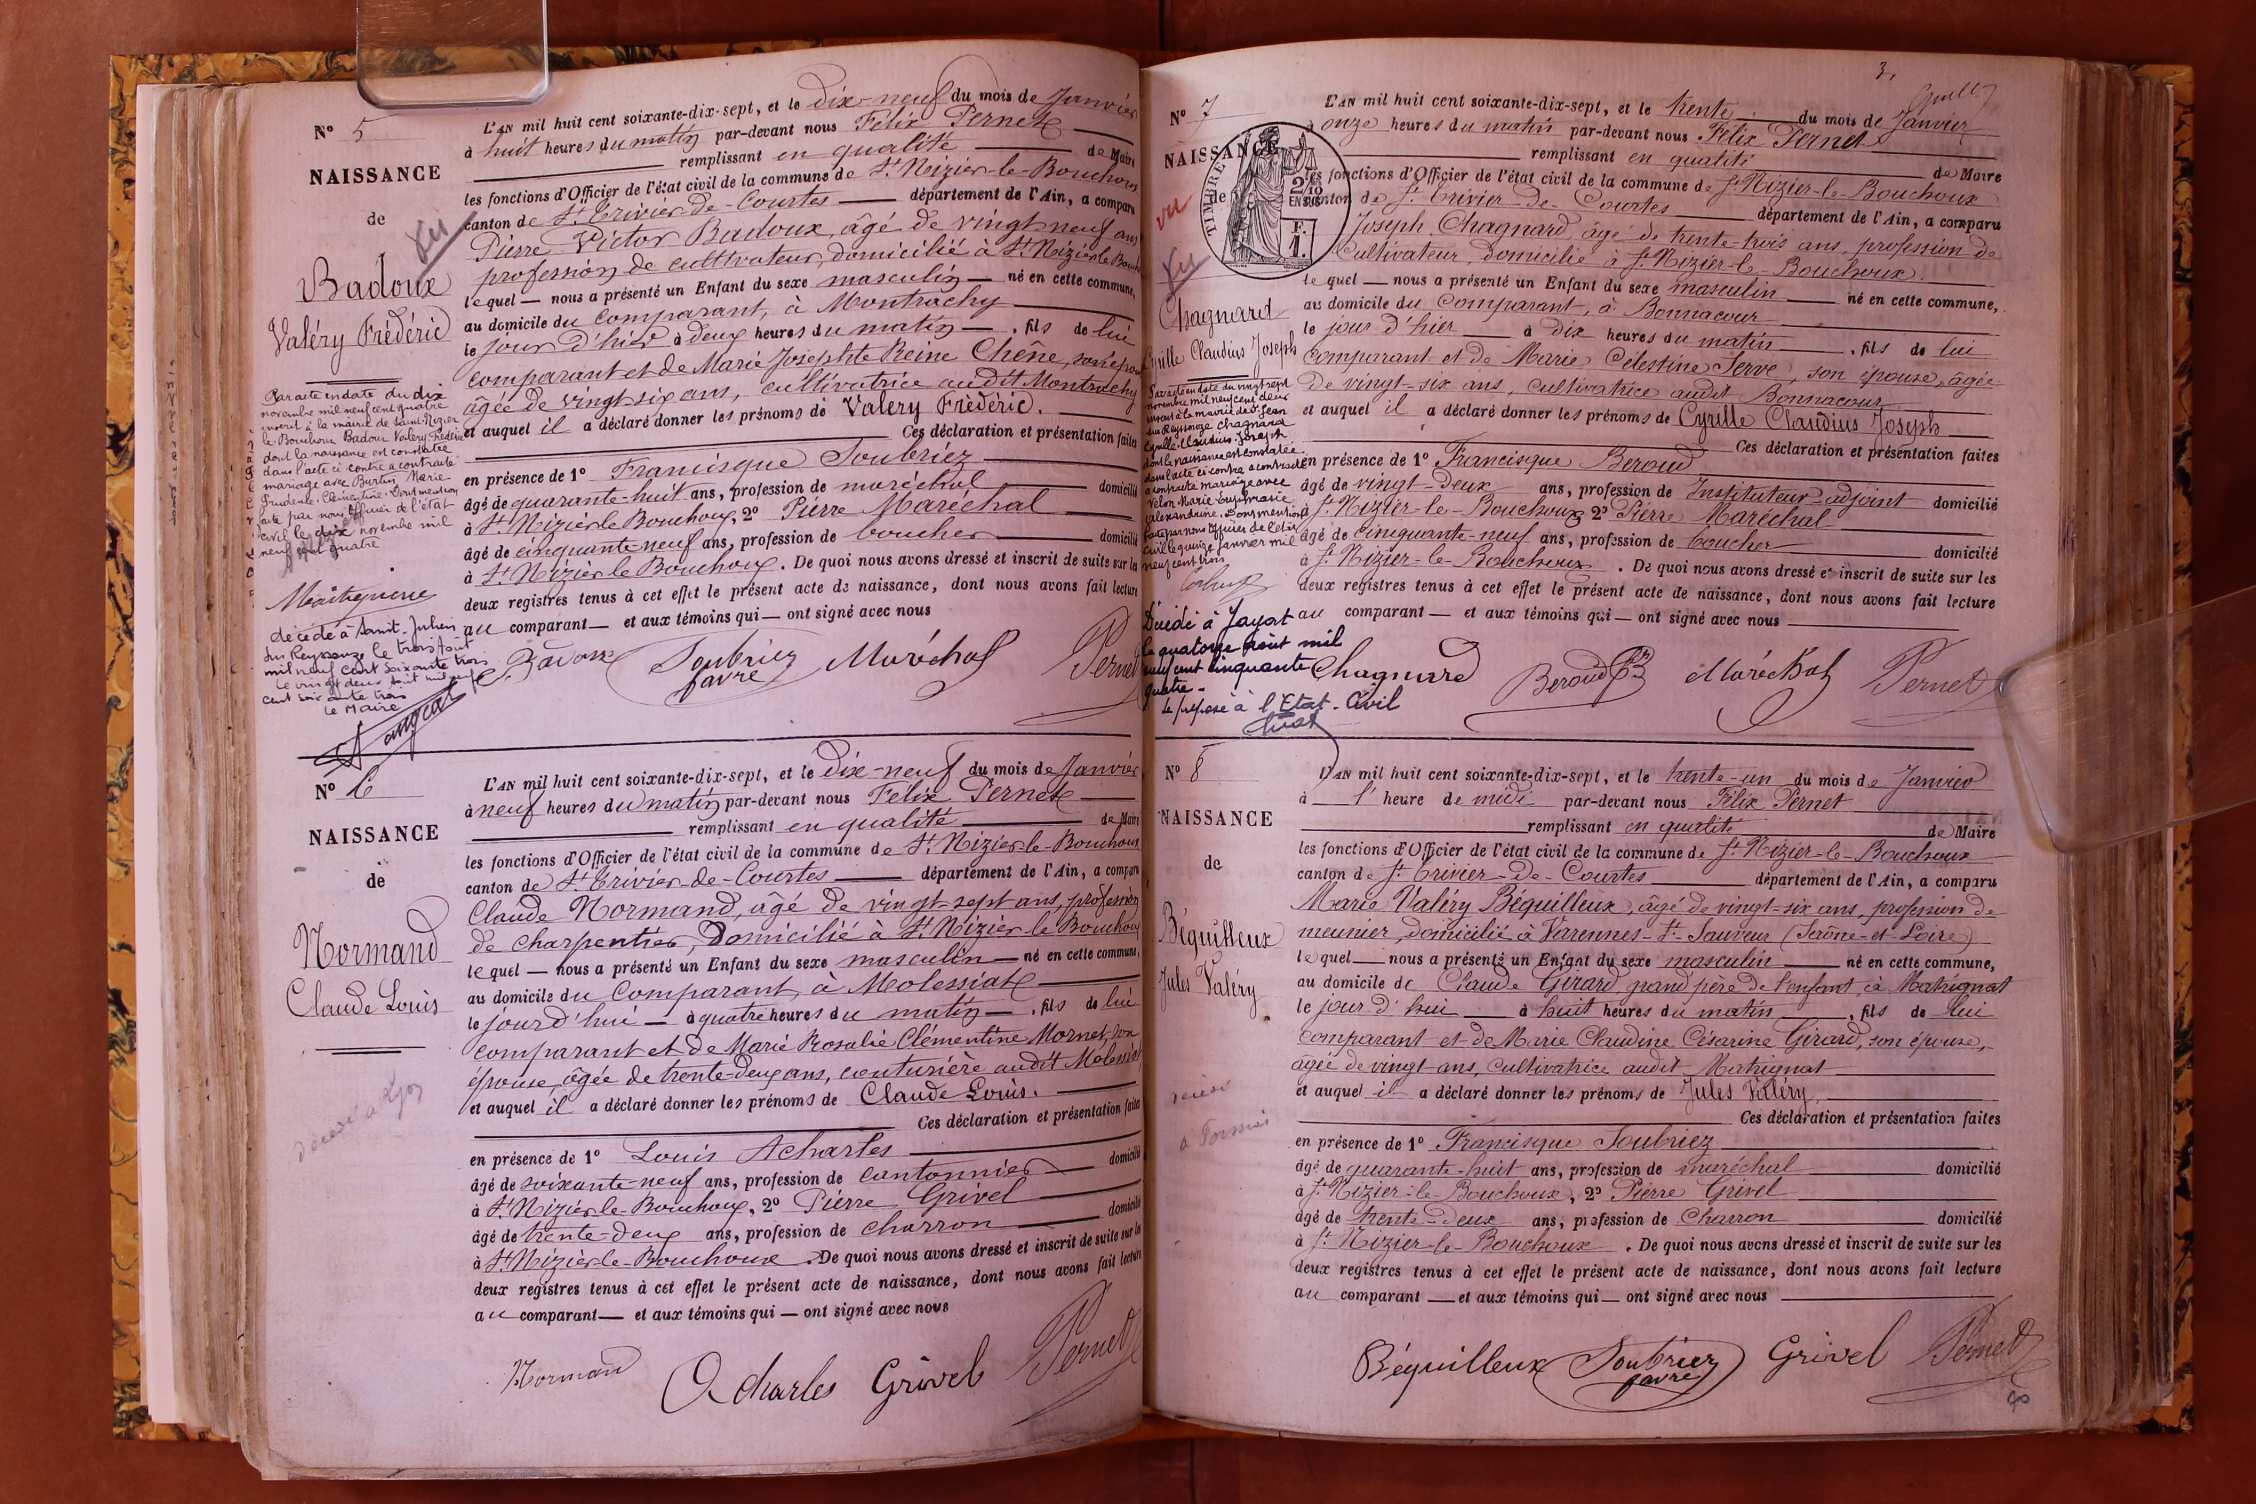 N° 5
NAISSANCE
de
Vu
Badoux
Valéry Frédéric
Par acte en date du dix
novembre mil neuf cent quatre
inscrit à la mairie de Saint-Nizier
le-Bouchoux Badoux Valéry Frédéric
dont la naissance est constatée
dans l'acte ci-contre a contracté
mariage avec Burtin Marie
Prudente Clémentine. Dont mention
faite par nous Officier de l'état
civil le dix novembre mil
neuf cent quatre
décédé à Saint-Julien
sur Reyssouze le trois août
mil neuf cent soixante trois
le vingt deux août mil neuf
cent soixante trois
Le Maire
L'AN mil huit cent soixante-dix-sept, et le dix-neuf du mois de Janvier
à huit heures du matin par-devant nous Félix Pernet
remplissant en qualité de Maire
les fonctions d'Officier de l'état civil de la commune de St Nizier-le-Bouchoux
canton de St Trivier-de-Courtes département de l'Ain, a comparu
Pierre Victor Badoux, âgé de vingt neuf ans
profession de cultivateur, domicilié à St Nizier le Bouch
lequel — nous a présenté un Enfant du sexe masculin — né en cette commune,
au domicile du comparant, à Montrachy
le jour d'hier à deux heures du matin — , fils de lui
comparant et de Marie Josephte Reine Chêne, son épouse
âgée de vingt six ans, cultivatrice audit Montrachy
et auquel il a déclaré donner les prénoms de Valéry Frédéric.
Ces déclaration et présentation faites
en présence de 1° Francisque Soubriez
âgé de quarante-huit ans, profession de maréchal domicilié
à St Nizier le Bouchoux, 2° Pierre Maréchal
âgé de cinquante neuf ans, profession de boucher domicilié
à St Nizier le Bouchoux. De quoi nous avons dressé et inscrit de suite sur les
deux registres tenus à cet effet le présent acte de naissance, dont nous avons fait lecture
au comparant — et aux témoins qui — ont signé avec nous
Badoux Soubriez favre Maréchal Pernet
N° 6
NAISSANCE
de
Normand
Claude Louis
décédé à Lyon
L'AN mil huit cent soixante-dix-sept, et le dix-neuf du mois de Janvier
à neuf heures du matin par-devant nous Félix Pernet
remplissant en qualité de Maire
les fonctions d'Officier de l'état civil de la commune de St Nizier-le-Bouchoux
canton de St Trivier-de-Courtes département de l'Ain, a comparu
Claude Normand, âgé de vingt-sept ans, profession
de charpentier, domicilié à St Nizier-le Bouchoux
lequel — nous a présenté un Enfant du sexe masculin — né en cette commune,
au domicile du Comparant, à Molessiat
le jour d'hui — à quatre heures du matin — , fils de lui
comparant et de Marie Rosalie Clémentine Mornet, son
épouse, âgée de trente-deux ans, couturière audit Molessiat
et auquel il a déclaré donner les prénoms de Claude Louis.
Ces déclaration et présentation faites
en présence de 1° Louis Acharles
âgé de soixante neuf ans, profession de cantonnier domicilié
à St Nizier-le-Bouchoux, 2° Pierre Grivel
âgé de trente-deux ans, profession de charron domicilié
à St Nizier-le-Bouchoux. De quoi nous avons dressé et inscrit de suite sur les
deux registres tenus à cet effet le présent acte de naissance, dont nous avons fait lecture
au comparant — et aux témoins qui — ont signé avec nous
Normand Acharles Grivel Pernet
3.
N° 7
NAISSANCE
de
TIMBRE
2/10
EN SUS
F.
1.
vu
Vu
Chagnard
Cyrille Claudius Joseph
Par acte en date du vingt sept
novembre mil neuf cent deux
inscrit à la mairie de St Jean
sur Reyssouze Chagnard
Cyrille Claudius Joseph
dont la naissance est constatée
dans l'acte ci-contre a contracté
a contracté mariage avec
Velon Marie Euphrasie
Alexandrine. Dont mention
faite par nous Officier de l'état
civil le quinze Janvier mil
neuf cent trois
Décédé à Jayat
le quatorze août mil
neuf cent cinquante
quatre -
Le préposé à l'Etat-Civil
L'AN mil huit cent soixante-dix-sept, et le trente du mois de Janvier
à onze heures du matin par-devant nous Félix Pernet
remplissant en qualité de Maire
les fonctions d'Officier de l'état civil de la commune de St Nizier-le-Bouchoux
canton de St Trivier-de-Courtes département de l'Ain, a comparu
Joseph Chagnard, âgé de trente-trois ans, profession de
Cultivateur, domicilié à St Nizier-le-Bouchoux.
lequel — nous a présenté un Enfant du sexe masculin né en cette commune,
au domicile du comparant, à Bonnacour
le jour d'hier à dix heures du matin , fils de lui
comparant et de Marie Célestine Serve, son épouse, âgée
de vingt-six ans, cultivatrice audit Bonnacour
et auquel il a déclaré donner les prénoms de Cyrille Claudius Joseph
Ces déclaration et présentation faites
en présence de 1° Francisque Beroud
âgé de vingt-deux ans, profession de Instituteur adjoint domicilié
à St Nizier-le-Bouchoux 2° Pierre Maréchal
âgé de cinquante-neuf ans, profession de boucher domicilié
à St Nizier-le-Bouchoux. De quoi nous avons dressé et inscrit de suite sur les
deux registres tenus à cet effet le présent acte de naissance, dont nous avons fait lecture
au comparant — et aux témoins qui — ont signé avec nous
Chagnard Beroud Maréchal Pernet
N° 8
NAISSANCE
de
Béquilleux
Jules Valéry
L'AN mil huit cent soixante-dix-sept, et le trente-un du mois de Janvier
à l'heure de midi par-devant nous Félix Pernet
remplissant en qualité de Maire
les fonctions d'Officier de l'état civil de la commune de St Nizier-le-Bouchoux
canton de St Trivier-de-Courtes département de l'Ain, a comparu
Marie Valéry Béquilleux, âgé de vingt-six ans, profession de
meunier, domicilié à Varennes-St-Sauveur (Saône-et-Loire)
lequel — nous a présenté un Enfant du sexe masculin né en cette commune,
au domicile de Claude Girard grand père de l'enfant, à Matrignat
le jour d'hui à huit heures du matin , fils de lui
comparant et de Marie Claudine Césarine Girard, son épouse,
âgée de vingt ans, cultivatrice audit Matrignat
et auquel il a déclaré donner les prénoms de Jules Valéry.
Ces déclaration et présentation faites
en présence de 1° Francisque Soubriez
âgé de quarante-huit ans, profession de maréchal domicilié
à St Nizier-le-Bouchoux, 2° Pierre Grivel
âgé de trente-deux ans, profession de Charron domicilié
à St Nizier-le-Bouchoux. De quoi nous avons dressé et inscrit de suite sur les
deux registres tenus à cet effet le présent acte de naissance, dont nous avons fait lecture
au comparant — et aux témoins qui — ont signé avec nous
Béquilleux Soubriez favre Grivel Pernet